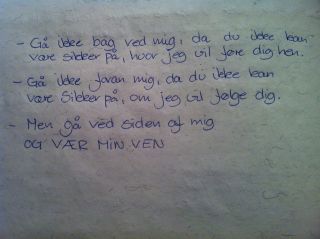 - Gå ikke bag ved mig, da du ikke kan
være sikker på, hvor jeg vil føre dig hen.
- Gå ikke foran mig, da du ikke kan
være sikker på, om jeg vil følge dig.
- Men gå ved siden af mig
OG VÆR MIN VEN